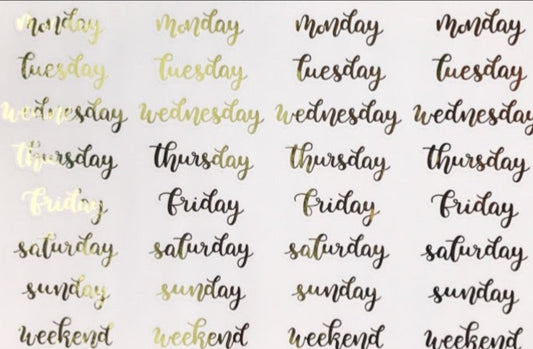 monday monday monday monday
tuesday tuesday tuesday tuesday
wednesday wednesday wednesday wednesday
thursday thursday thursday thursday
friday friday friday friday
saturday saturday saturday saturday
sunday sunday sunday sunday
weekend weekend weekend weekend